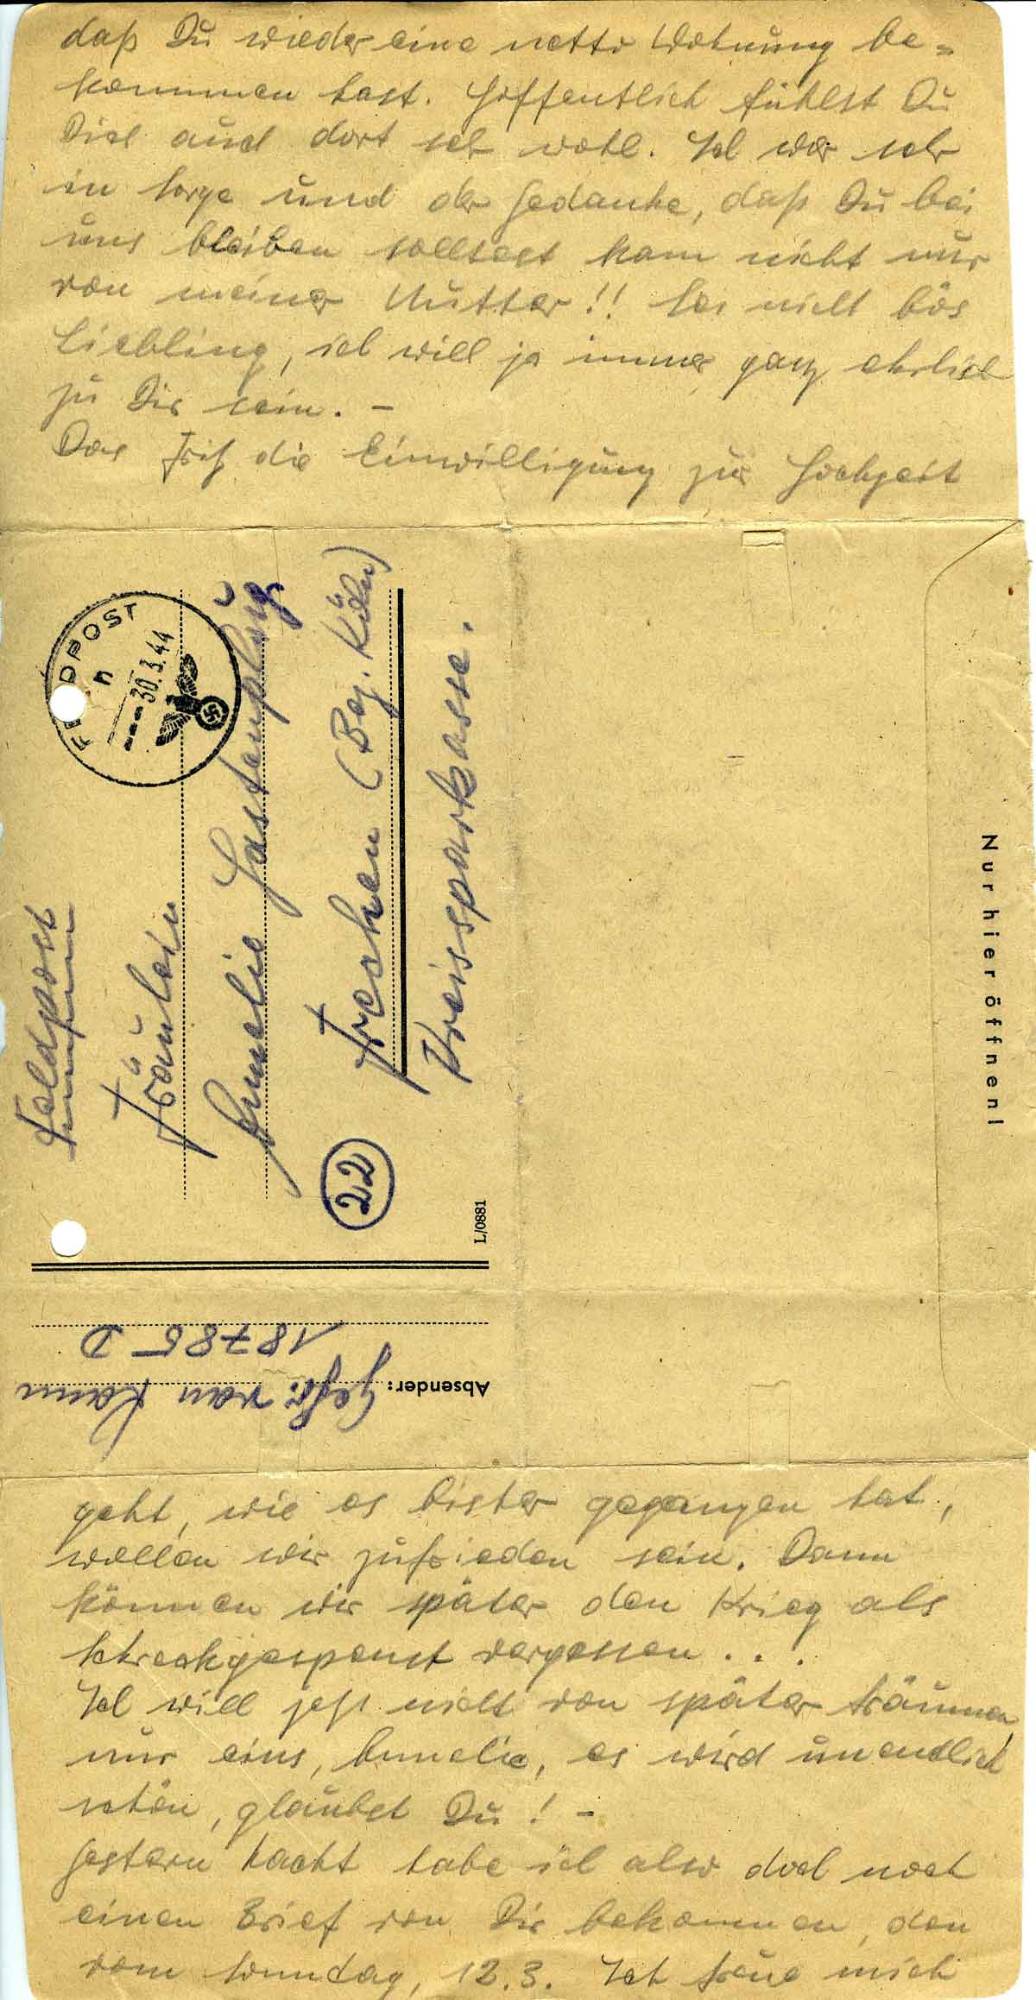 daß Du wieder eine nette Wohnung be=
kommen hast. Hoffentlich fühlst Du
Dich auch dort sehr wohl. Ich war sehr
in Sorge und der Gedanke, daß Du bei
uns bleiben solltest kam nicht nur
von meiner Mutter!! Sei nicht bös
Liebling, ich will ja immer ganz ehrlich
zu Dir sein. –
Das Fritz die Einwilligung zur Hochzeit
FELDPOST
n
30.3.44
Feldpost
Fräulein
Annelie Hastenpflug
Frechen (Bez. Köln)
Kreissparkasse.
22
L/0881
Nur hier öffnen!
Absender: Gefr. van Kann
18785 D
geht, wie es bisher gegangen hat,
wollen wir zufrieden sein. Dann
können wir später den Krieg als
Schreckgespenst vergessen . . .
Ich will jetzt nicht von später träumen
nur eins, Annelie, es wird unendlich
schön, glaubst Du! –
Gestern Nacht habe ich also doch noch
einen Brief von Dir bekommen, den
vom Sonntag, 12.3. Ich freue mich